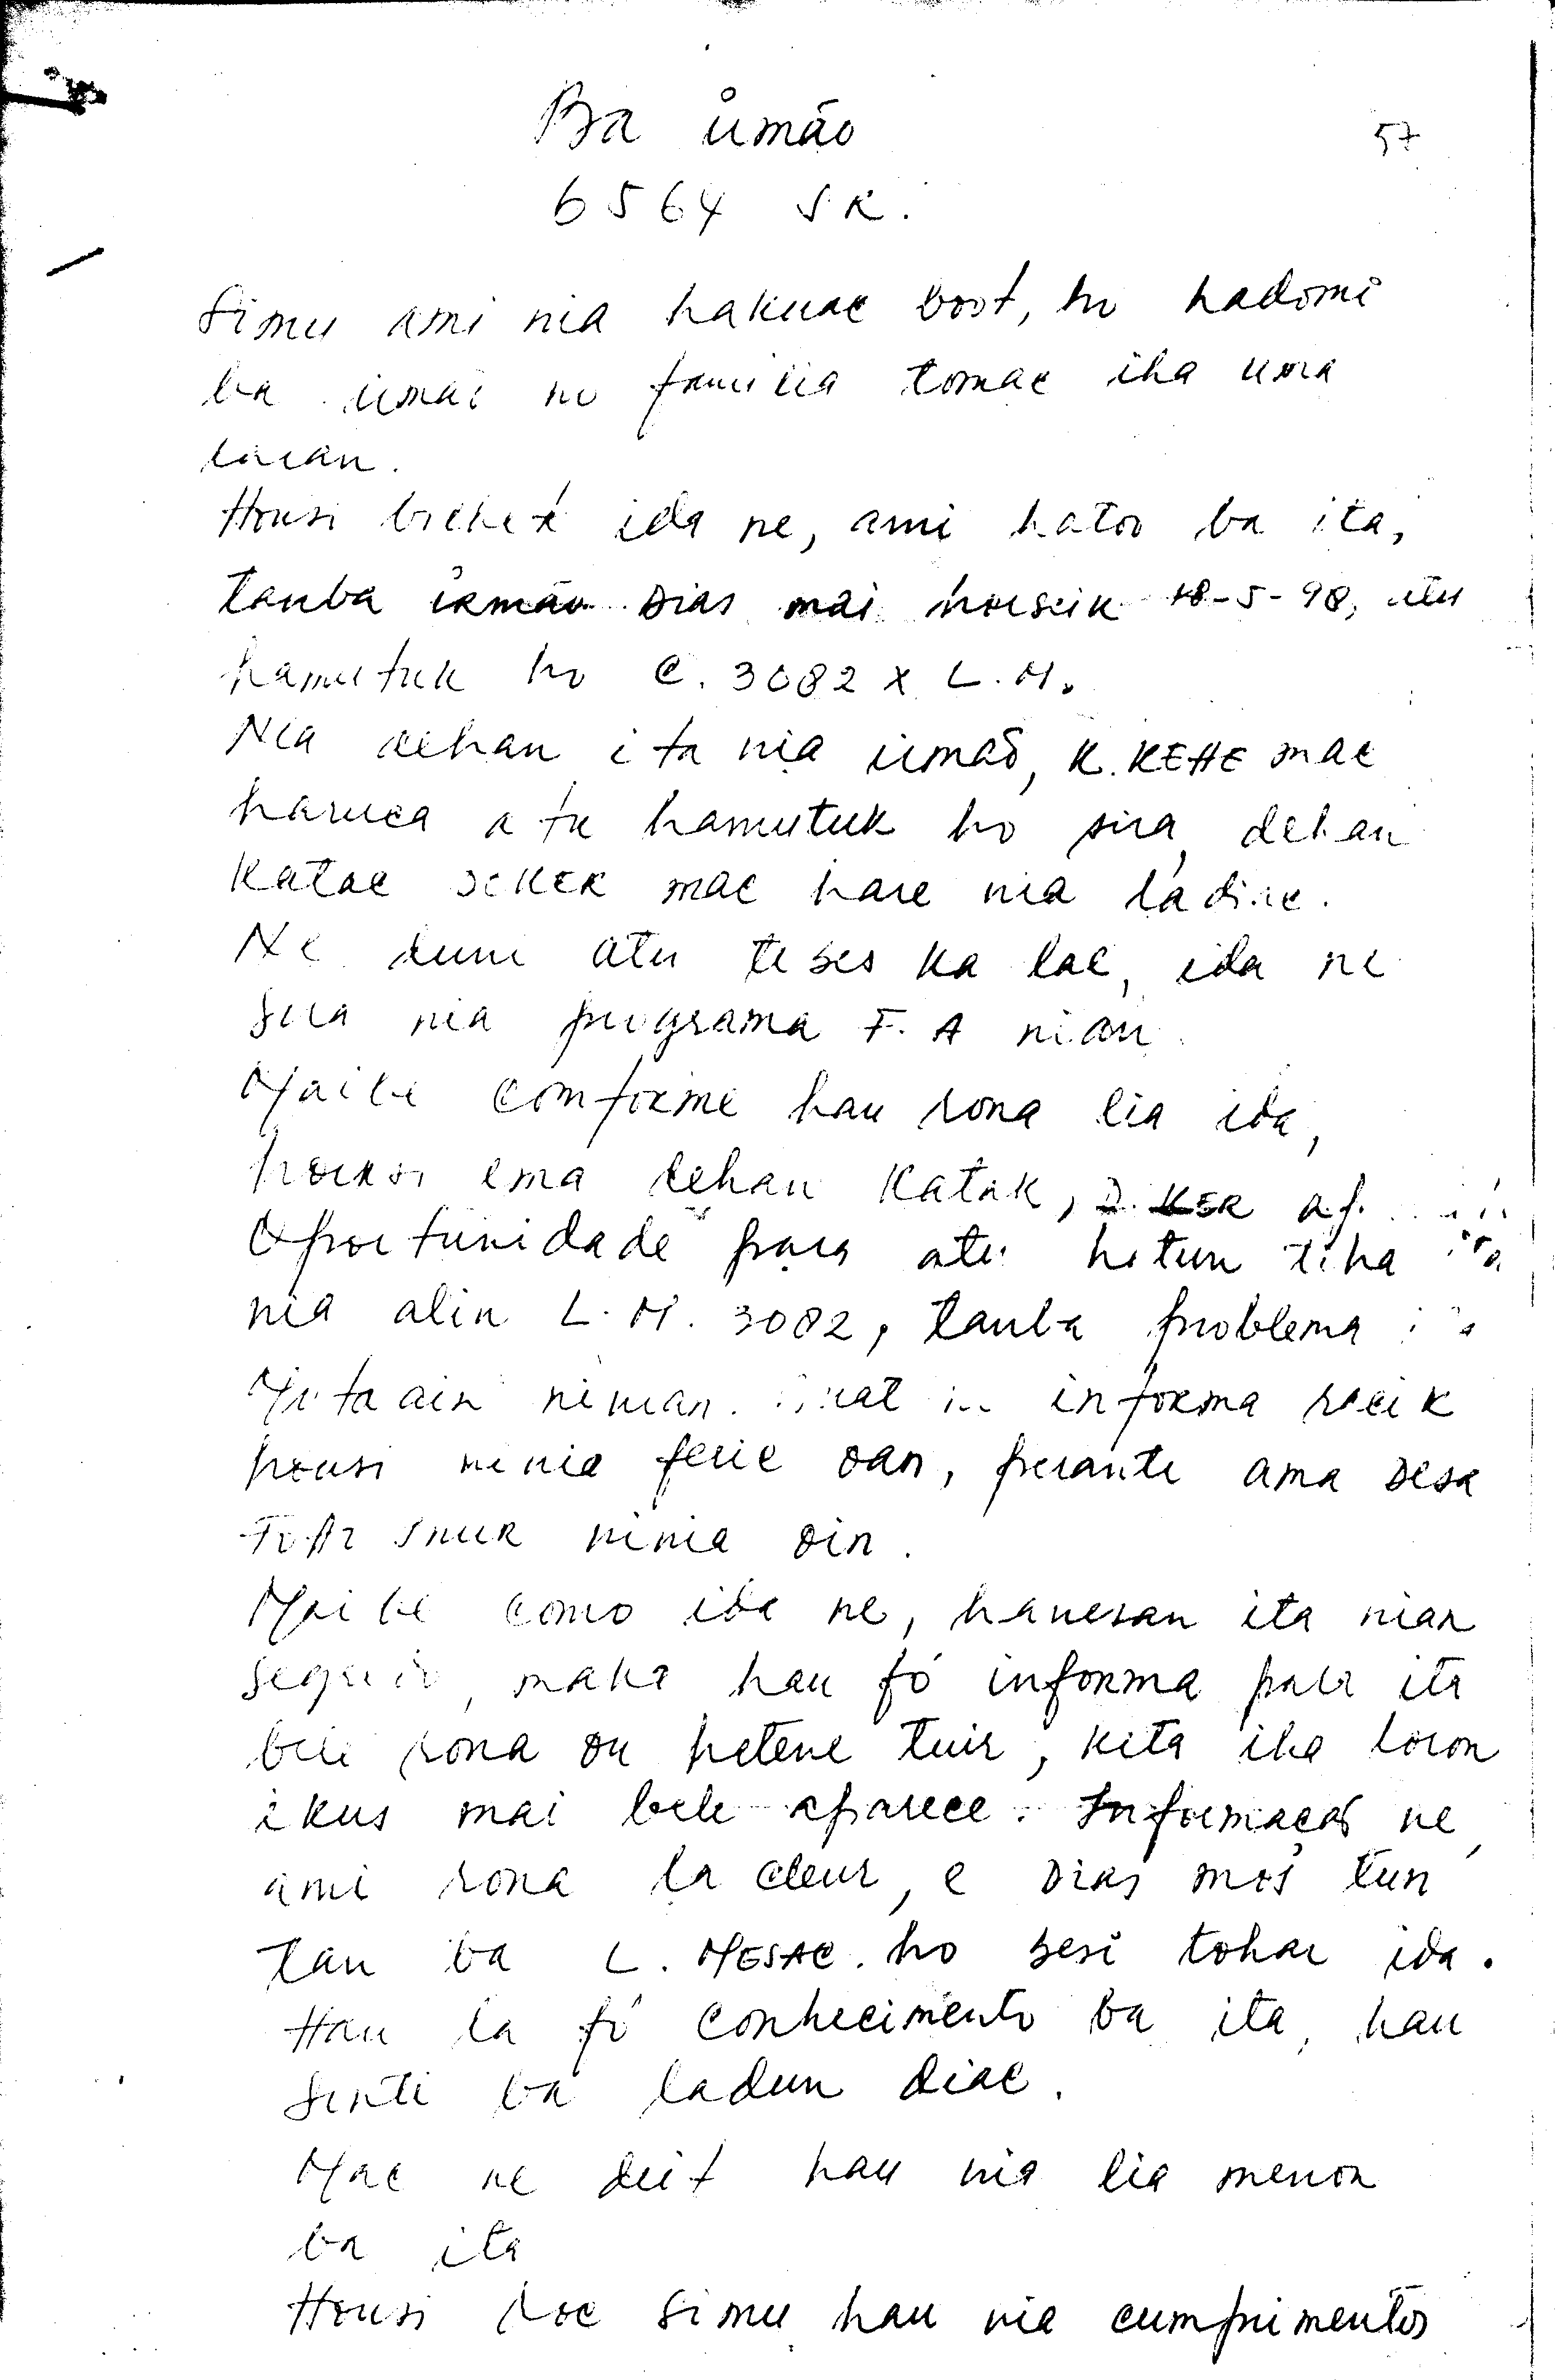 Ba irmão
57
6564 SR.
Simu ami nia hakuac boot, ho hadomi
ba irmão no familia tomac iha uma
laran.
Housi bilhet ida ne, ami hato ba ita,
tanba irmão Dias mai horseik 18-5-98, atu
hamutuk ho C. 3082 x L.M.
Nia dehan ita nia irmão, K. KEHE mac
haruca atu hamutuk ho sira, dehan
katac mac hare nia ladiac.
Ne duni atu teses ka lae, ida ne
sira nia programa F. A nian.
Maibe comforme hau rona lia ida,
housi ema dehan katak,
Oportunidade para atu hetun tiha ita
nia alin L. M. 3082, tanba problema
ninian. informa rasik
housi ninia feric oan, perante ama
ninia oin.
Maibe como ida ne, hanesan ita nian
segredo, maka hau fó informa para ita
bele rona ou hetene tuir, keta iha loron
ikus mai bele aparece. Informaçao ne,
ami rona la cleur, e Dias mos tun
tan ba L. MESAC. ho besi tohar ida.
Hau la fó conhecimento ba ita, hau
senti ba ladun diac.
Mac ne deit hau nia lia menon
ba ita
Housi doc simu hau nia cumprimentos